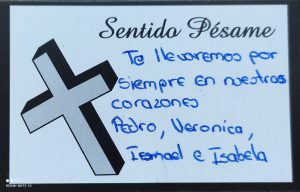 Sentido Pésame
Te llevaremos por
siempre en nuestros
corazones
Pedro, Veronica,
Ismael e Isabela